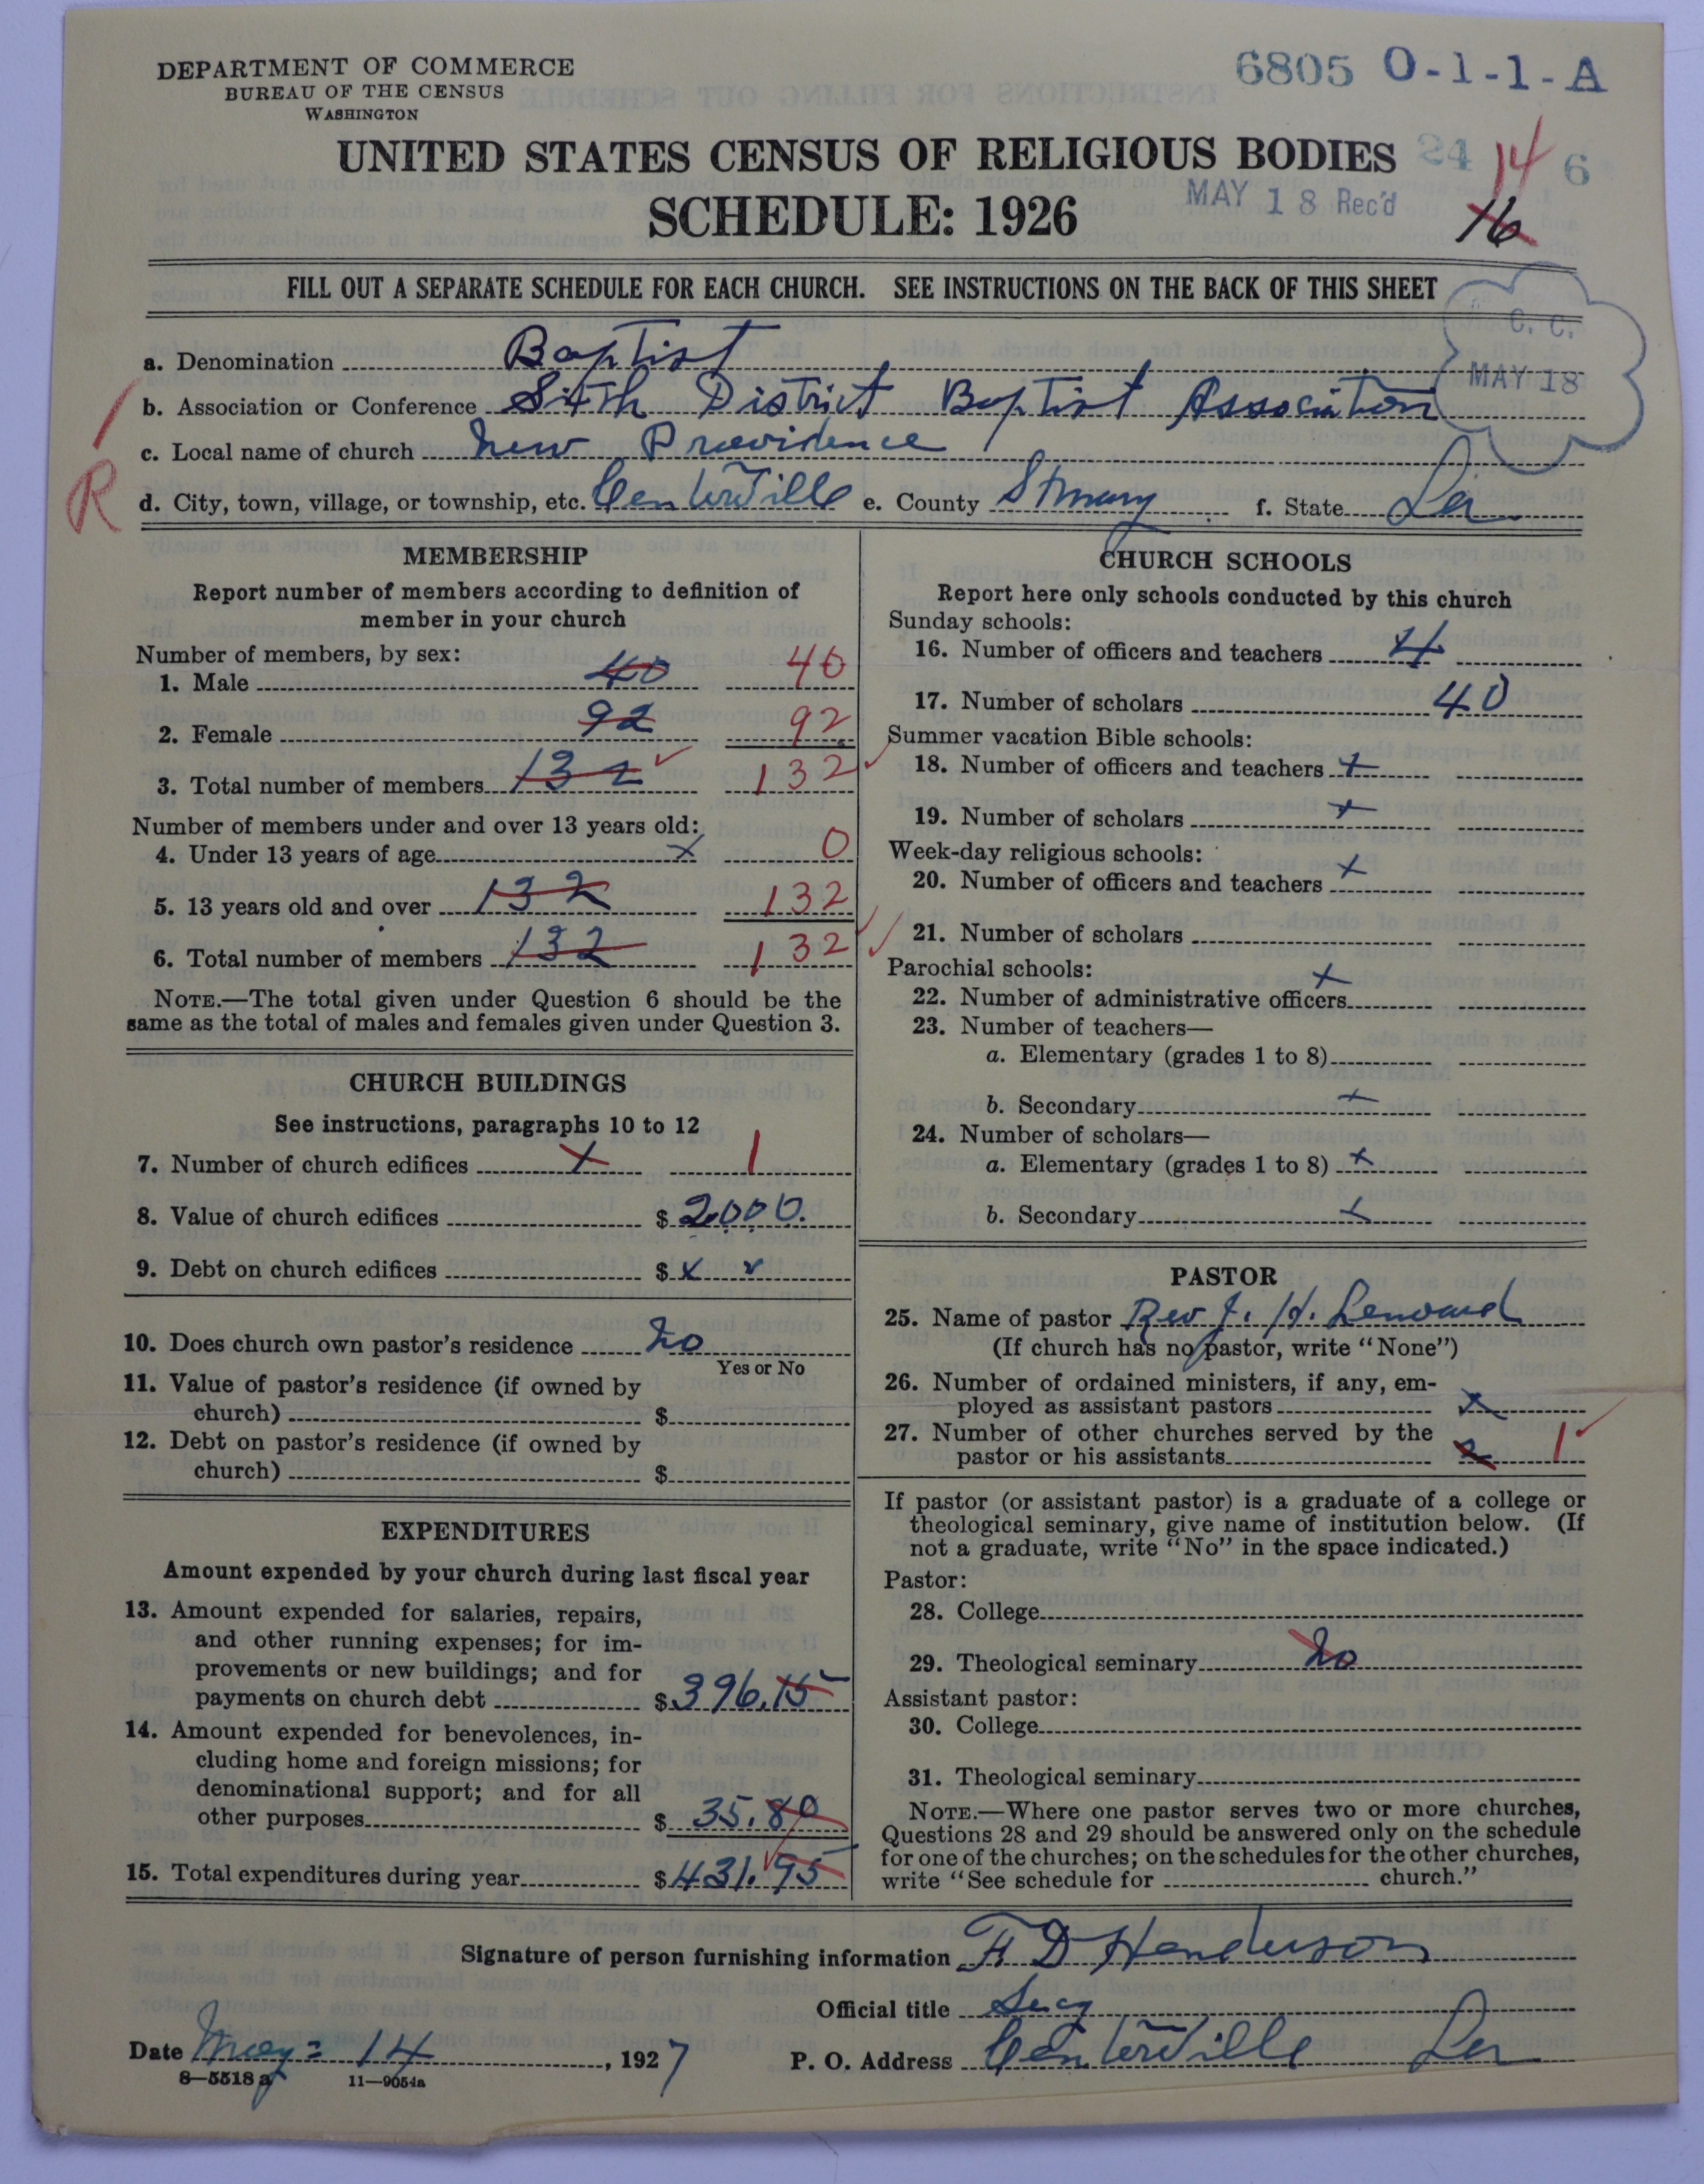 DEPARTMENT OF COMMERCE
BUREAU OF THE CENSUS
WASHINGTON
6805 O-1-1-A
UNITED STATES CENSUS OF RELIGIOUS BODIES
24 14 6
SCHEDULE: 1926
MAY 18 Rec'd
16
FILL OUT A SEPARATE SCHEDULE FOR EACH CHURCH. SEE INSTRUCTIONS ON THE BACK OF THIS SHEET
C. C.
MAY 18
a. Denomination Baptist
b. Association or Conference Sixth District Baptist Association
c. Local name of church New Providence
R
d. City, town, village, or township, etc. Centerville e. County St mary f. State La
MEMBERSHIP
Report number of members according to definition of
member in your church
Number of members, by sex:
1. Male 40 40
2. Female 92 92
3. Total number of members 132 132
Number of members under and over 13 years old:
4. Under 13 years of age x 0
5. 13 years old and over 132 132
6. Total number of members 132 132
NOTE.—The total given under Question 6 should be the
same as the total of males and females given under Question 3.
CHURCH BUILDINGS
See instructions, paragraphs 10 to 12
7. Number of church edifices x 1
8. Value of church edifices $ 2000.
9. Debt on church edifices $ x
10. Does church own pastor's residence No
Yes or No
11. Value of pastor's residence (if owned by
church) $
12. Debt on pastor's residence (if owned by
church) $
EXPENDITURES
Amount expended by your church during last fiscal year
13. Amount expended for salaries, repairs,
and other running expenses; for im-
provements or new buildings; and for
payments on church debt $ 396.15
14. Amount expended for benevolences, in-
cluding home and foreign missions; for
denominational support; and for all
other purposes $ 35.80
15. Total expenditures during year $ 431.95
CHURCH SCHOOLS
Report here only schools conducted by this church
Sunday schools:
16. Number of officers and teachers 4
17. Number of scholars 40
Summer vacation Bible schools:
18. Number of officers and teachers x
19. Number of scholars x
Week-day religious schools:
20. Number of officers and teachers x
21. Number of scholars
Parochial schools:
22. Number of administrative officers x
23. Number of teachers—
a. Elementary (grades 1 to 8)
b. Secondary x
24. Number of scholars—
a. Elementary (grades 1 to 8) x
b. Secondary x
PASTOR
25. Name of pastor Rev J. H. Lenward
(If church has no pastor, write "None")
26. Number of ordained ministers, if any, em-
ployed as assistant pastors x
27. Number of other churches served by the
pastor or his assistants 2 1
If pastor (or assistant pastor) is a graduate of a college or
theological seminary, give name of institution below. (If
not a graduate, write "No" in the space indicated.)
Pastor:
28. College
29. Theological seminary No
Assistant pastor:
30. College
31. Theological seminary
NOTE.—Where one pastor serves two or more churches,
Questions 28 and 29 should be answered only on the schedule
for one of the churches; on the schedules for the other churches,
write "See schedule for church."
Signature of person furnishing information F D Henderson
Official title Secy
Date May 14, 1927 P. O. Address Centerville La
8—5518 a 11—9054a